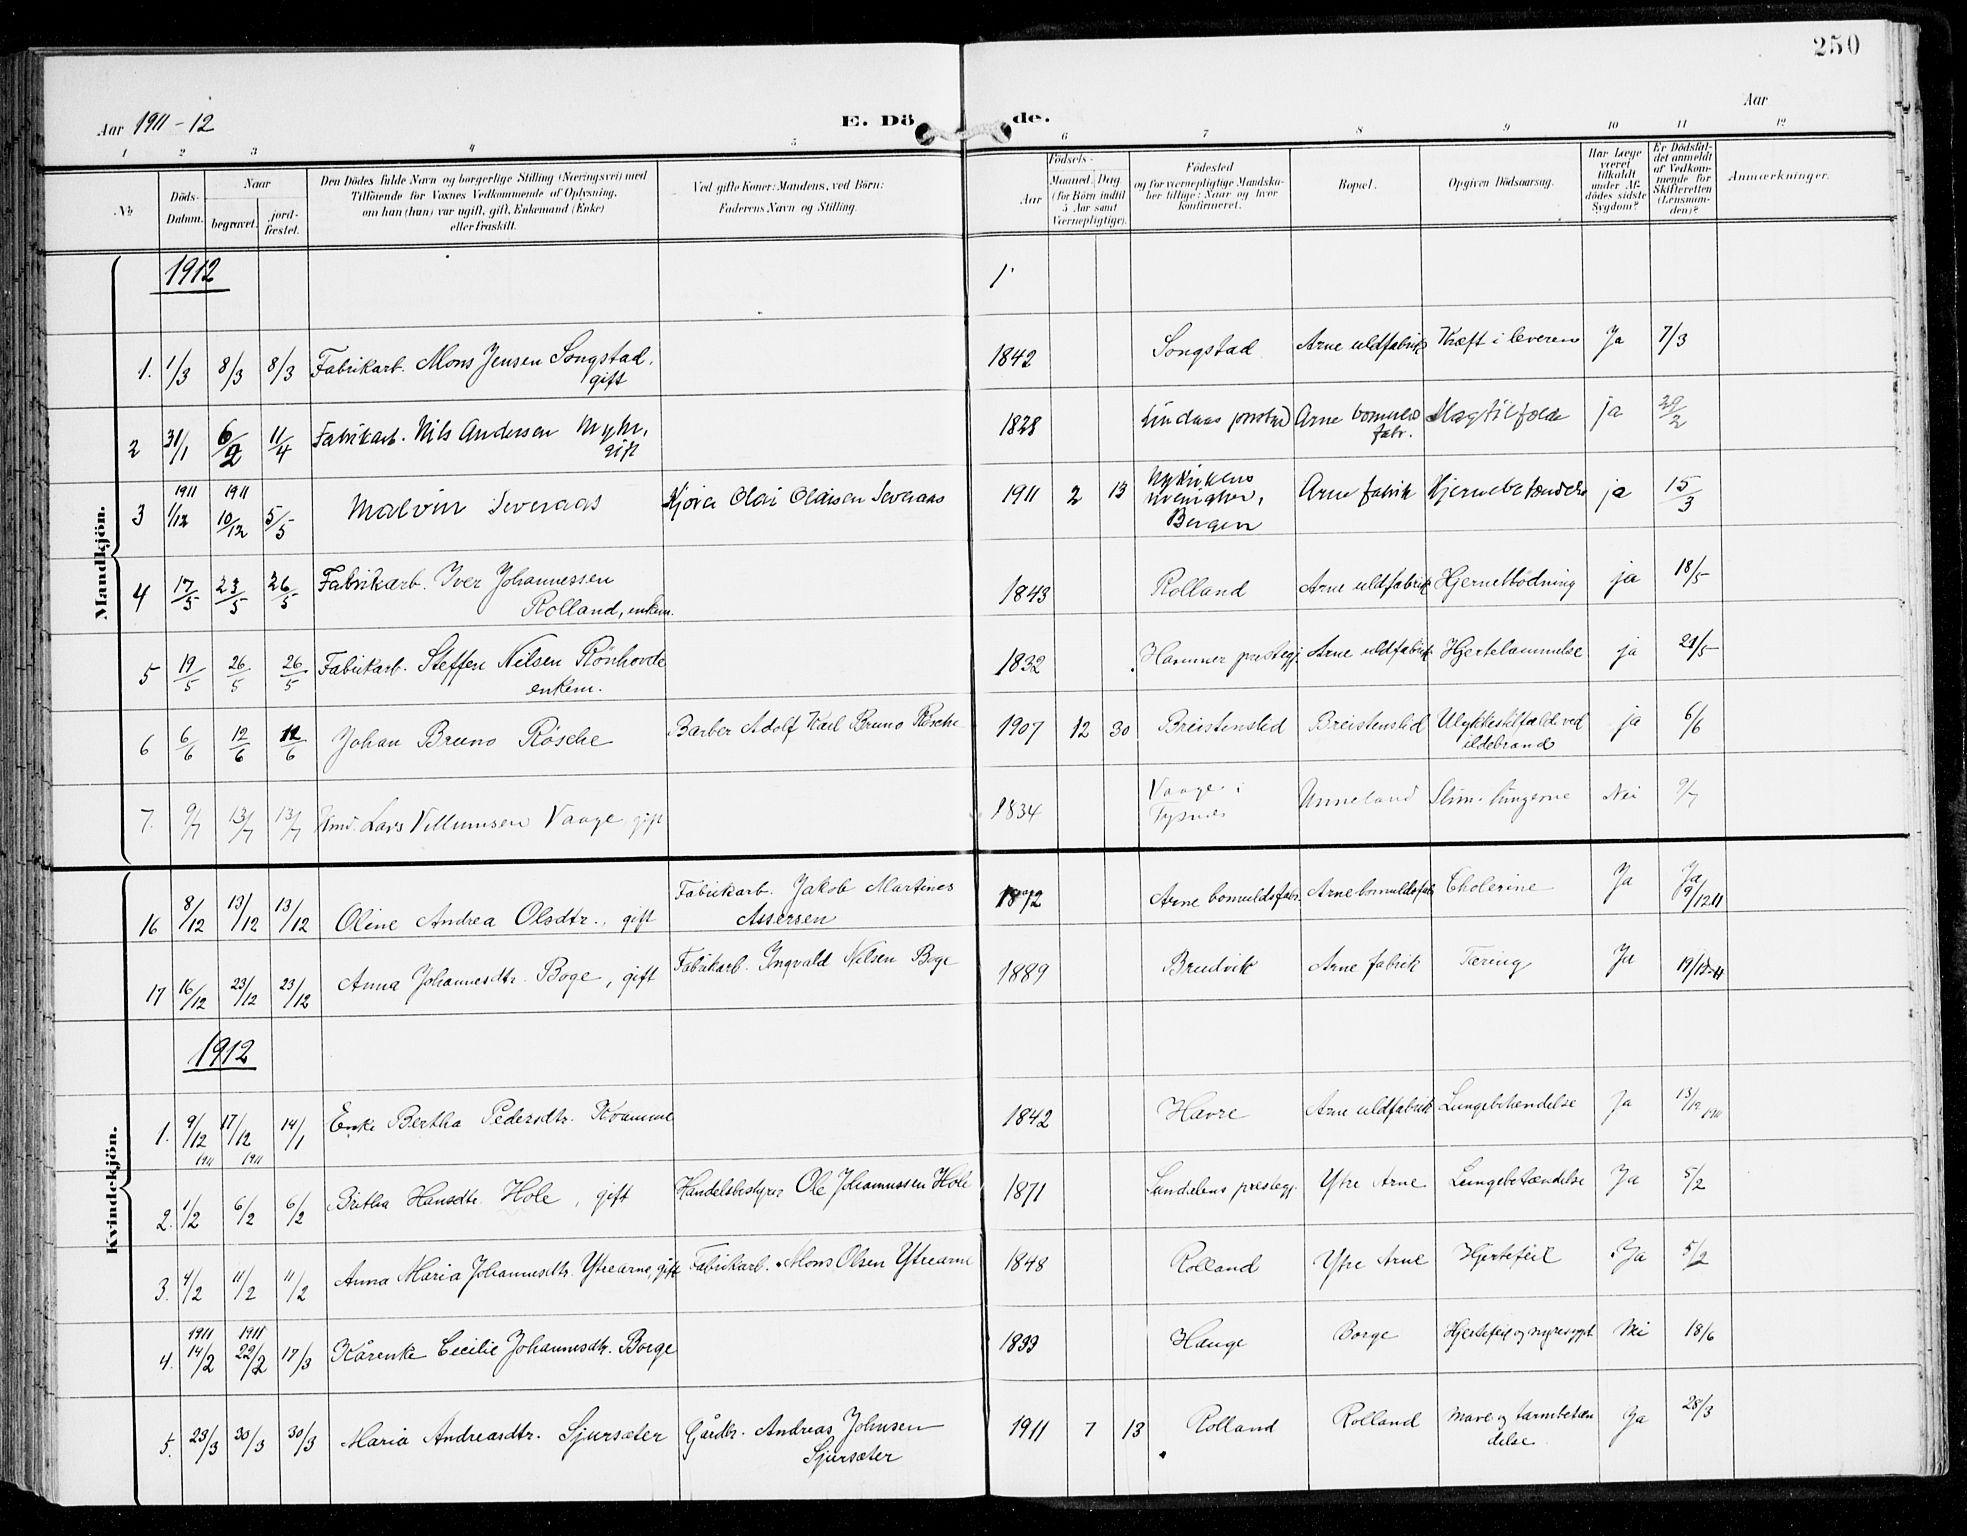 250
Aar 1911-12
E. Dö de.
Aar
1 2 3 4 5 6 7 8 9 10 11 12
No
Döds-Datum.
Naar
begravet.
jord-fæstet.
Den Dödes fulde Navn og borgerlige Stilling (Næringsvei) med
Tilföiende for Voxnes Vedkommende af Oplysning,
om han (hun) var ugift, gift, Enkemand (Enke)
eller fraskilt.
Ved gifte Koner: Mandens, ved Börn:
Faderens Navn og Stilling.
Födsels-
Aar
Maaned. Dag
(for Börn indtil
5 Aar samt
Værnepligtige).
Födested
og for værnepligtige Mandska-
ber tillige: Naar og hvor
konfirmeret.
Bopæl.
Opgiven Dödsaarsag.
Har Læge
været
tilkaldt
under Af-
dödes sidste
Sygdom?
Er Dödsfal-
det anmeldt
af Vedkom-
mende for
Skifteretten
(Lensman-
den)?
Anmærkninger.
Mandkjön.
1912
1. 1/3 8/3 8/3 Fabrikarb. Mons Jensen Songstad, gift 1842 Songstad Arne uldfabrik Kræft i leveren Ja 7/3
2 31/1 6/2 11/4 Fabrikarb. Nils Andersen Myhr, gift 1828 Lindaas prestgj Arne bomulds fabr. Slagtilfælde ja 29/2
3 1911 1/12 1911 10/12 5/5 Malvin Severaas Olai Olaisen Severaas 1911 2 13 Bergen Arne fabrik Hjernebetændelse ja 15/3
4 17/5 23/5 26/5 Fabrikarb. Iver Johannessen Rolland, enkem. 1843 Rolland Arne uldfabrik Hjerneblødning ja 18/5
5 19/5 26/5 26/5 Fabrikarb. Steffen Nilsen Rönhovde enkem. 1832 Hammer prestegj. Arne uldfabrik Hjertelammelse ja 21/5
6 6/6 12/6 12/6 Johan Bruno Rösche Barber Adolf Karl Bruno Rösche 1907 12 30 Breistensted Breistenslid Ulykkestilfælde ved ildebrand ja 6/6
7. 9/7 13/7 13/7 Lars Villumsen Vaage, gift 1834 Vaage i Tysnes Unneland Slim i lungerne Nei 9/7
Kvindekjön.
16 8/12 13/12 13/12 Oline Andrea Olsdtr., gift Fabrikarb. Jakob Martines Assersen 1872 Arne bomuldsfabr. Arne bomuldsfab Cholerine Ja Ja 9/12 11
17 16/12 23/12 23/12 Anna Johannesdtr. Boge, gift Fabrikarb. Ingvald Nilsen Boge 1889 Bruvik Arne fabrik Tæring Ja 19/12-11
1912
1. 9/12 1911 17/12 1911 14/1 Enke Bertha Pedersdtr. Kvamme 1842 Havre Arne uldfabrik Lungebetændelse Ja 13/12 1911
2. 1/2 6/2 6/2 Britha Hansdtr. Hole, gift Handelsbestyrer Ole Johannessen Hole 1871 Sundalens prestegj. Ytre Arne Lungebetændelse Ja 5/2
3. 4/2 11/2 11/2 Anna Maria Johannesdtr. Ytrearne, gift Fabrikarb. Mons Olsen Ytrearne 1848 Rolland Ytre Arne Hjertefeil Ja 5/2
4. 1911 14/2 1911 22/2 17/3 Kårenke Cecilie Johannesdtr. Borge 1833 Hauge Borge Hjertefeil og nyresygd. Nei 18/6
5. 23/3 30/3 30/3 Maria Andreasdtr. Sjursæter Gårdbr. Andreas Johnsen Sjursæter 1911 7 13 Rolland Rolland Mave og tarmbetændelse Ja 28/3